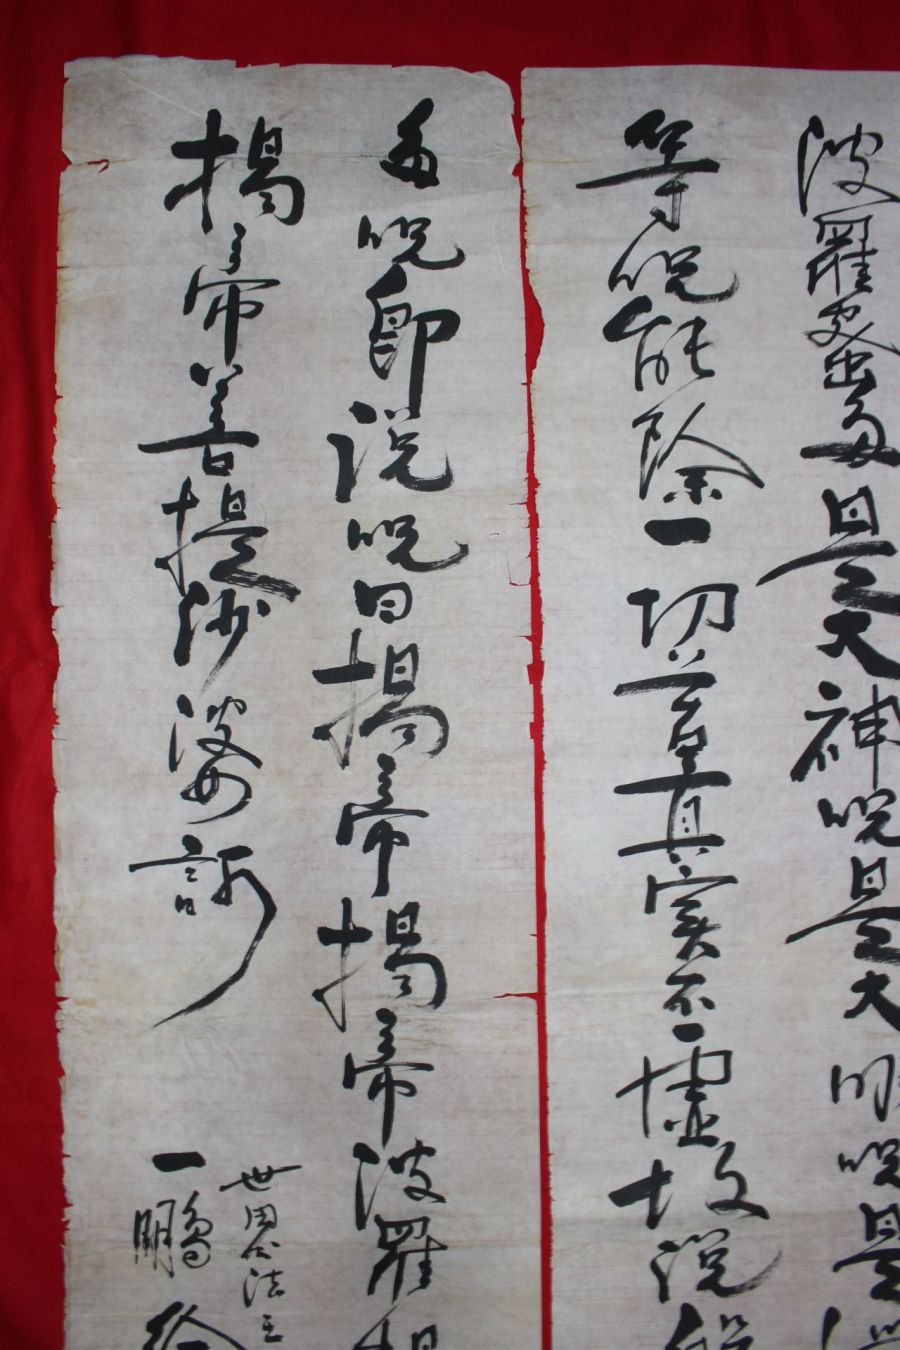 波羅蜜多是大神咒是大明咒是
等咒能除一切苦真實不虛故說般
多咒即說咒曰揭帝揭帝波羅揭
揭帝菩提沙婆訶
世界法王
一鵬